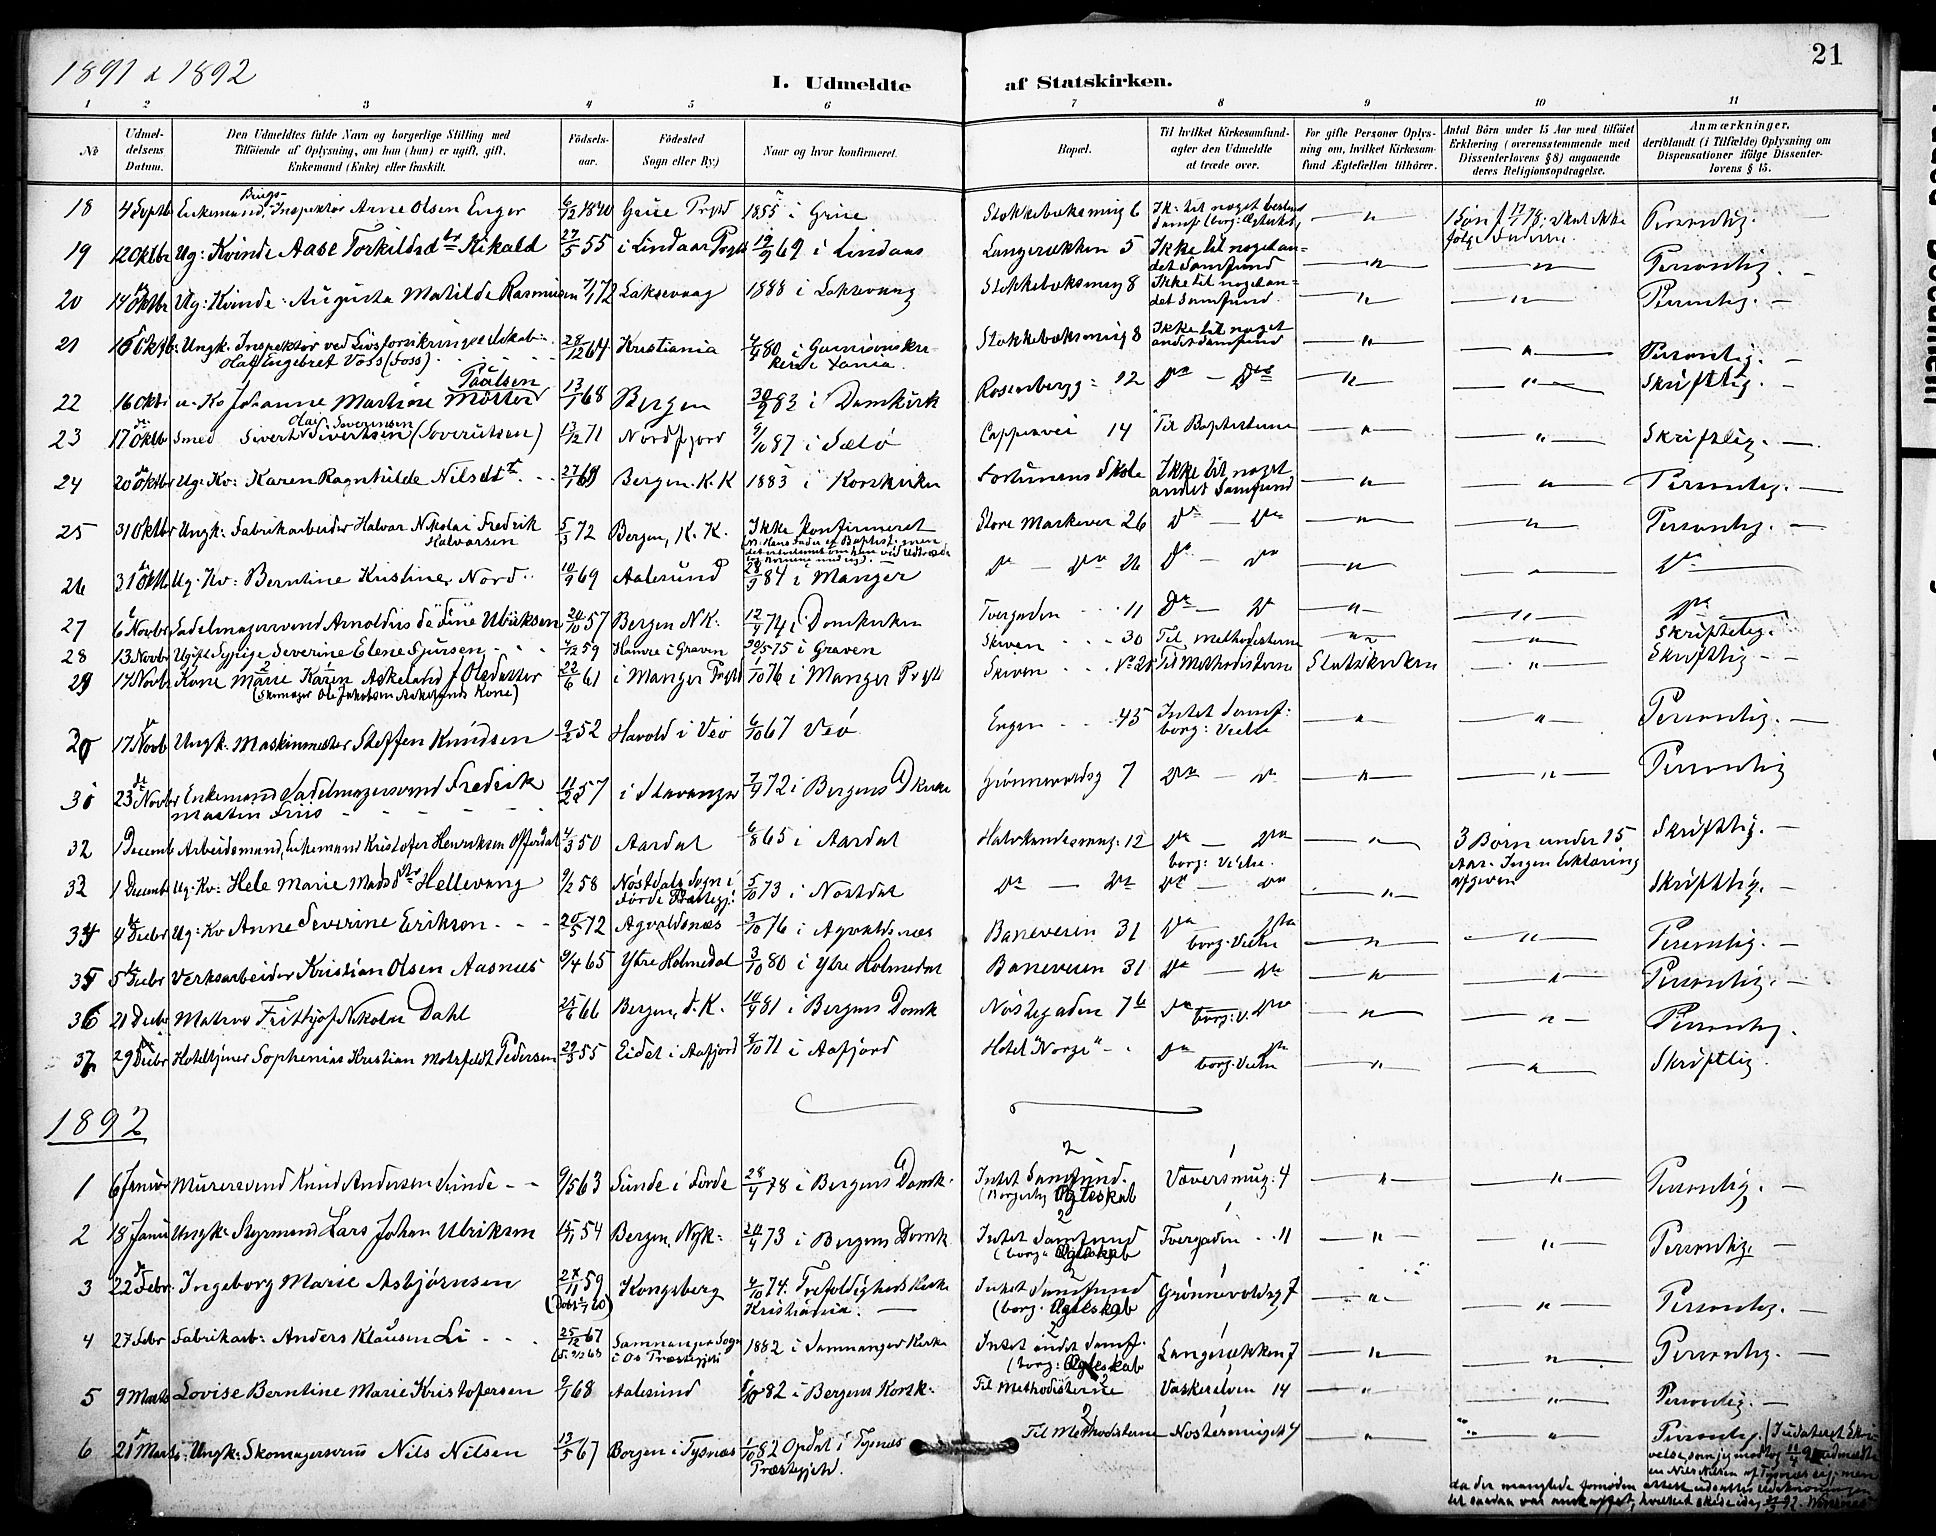 1891 & 1892
I. Udmeldte af Statskirken.
21
1 2 3 4 5 6 7 8 9 10 11
No
Udmeldelsens Datum.
Den Udmeldtes fulde Navn og borgerlige Stilling med Tilföiende af Oplysning, om han (hun) er ugift, gift, Enkemand (Enke) eller fraskilt.
Födselsaar.
Födested Sogn eller By.)
Naar og hvor konfirmeret.
Bopæl.
Til hvilket Kirkesamfund agter den Udmeldte at træde over.
For gifte Personer Oplysning om, hvilket Kirkesamfund Ægtefællen tilhörer.
Antal Börn under 15 Aar med tilföiet Erklæring (overensstemmende med Dissenterlovens § 8) angaaende deres Religionsopdragelse.
Anmærkninger, deriblandt (i Tilfælde) Oplysning om Dispensationer ifölge Dissenterlovens § 15.
18 4 Septb Enkemand, Brugs-Inspektör Arne Olsen Enger 6/12 1840 Grue Prgld 1855 i Grue Stokkebæksmug 6 " Personlig.
19 12 Oktbr Ug: Kvinde Aase Torkildsdtr Kikald 27/5 55 i Lindaas Prgld 19/9 69 i Lindaas Langerækken 5 Ikke til noget andet Samfund " " Personlig. —
20 14 Oktbr Ug: Kvinde: Augusta Matilde Rasmusen 7/1 72 Laksevaag 1888 i Laksevaag Stokkebæksmug 8 Ikke til noget andet Samfund. " " Personlig. —
21 16 Oktb: Ungk. Inspektör ved Livsforsikringsselskab Olaf Engebret Voss (Foss) 28/12 64 Kristiania 4/4 80 i Garnisonskirken i Xania. Stokkebæksmug 8 Ikke til noget andet Samfund " " Personlig. —
22 16 Oktr u. Kv Johanne Martine Möller Paulsen 13/1 68 Bergen 30/9 83 i Domkirk Rosenbergg: 12 Do — Do " " Skriftlig. —
23 17 Oktb Smed Sivert Sivertsen (Soverinsen) 13/12 71 Nordfjord 9/10 87 i Sælö Cappesvei 14 Til Baptisterne " " Skriftlig. —
24 20 Oktbr Ug: Kv: Karen Ragnhilde Nilsdtr 27/1 69 Bergen. K.K 1883 i Korskirken Fortunens Skole Ikke til noget andet Samfund " " Personlig. —
25 31 Oktbr Ungk: Fabrikarbeider Halvar Nikolai Fredrik Halvorsen 5/3 72 Bergen, K. K. Ikke konfirmeret Store Markevei 26 Do — Do " " Personlig. —
26 31 Oktb Ug. Kv: Berntine Kristine Nord 10/9 69 Aalesund 28/9 84 i Manger Do — Do 26 Do — Do " " Do
27 6 Novbr Sadelmagersvend Arnoldus da Fine Ulriksen 20/10 57 Bergen NK: 12/4 74 i Domkirken Tvergaden 11 Do — Do " " Do
28 13 Novbr Ugift Sypige Severine Elene Sjursen 1/12 59 Hamre i Graven 30/5 75 i Graven Skiven 30 Til Methodisterne " " Skriftlig.
29 17 Novbr Kone Marie Karen Askeland f. Olsdatter (Skomager Ole Jakobsen Askelands Kone) 22/6 61 i Manger Prgld 1/10 76 i Manger Prgld Skiven No 25 Til Methodisterne Statskirken " Skriftlig —
30 17 Novb Ungk. Maskinmester Steffen Knudsen 9/2 52 Havold i Veö 6/10 67 Veö Engen 45 Intet Samf: borg: Vielse " " Personlig. —
31 23 Novbr Enkemand Sadelmagersvend Fredrik Martin Friis 11/2 57 i Stavanger 7/4 72 i Bergens Dkirke Grönnevoldsg 7 Do — Do " " Personlig
32 1 Decemb Arbeidsmand, Enkemand Kristofer Henriksen Offerdal 4/3 50 Aardal 6/8 65 i Aardal Halvkandesmug: 12 Do — Do borg: Vielse. " 3 Börn under 15 Aar. Ingen Erklæring afgiven Skriftlig. —
32 1 Decemb Ug. Kv: Hele Marie Madsdtr Hellevang 9/2 58 Nöstdals Sogn i Förde Præstegj: 5/10 73 i Nöstdal Do — Do Do — Do " Skriftlig. —
34 4 Decbr Ug: Kv Anne Severine Erikson 20/5 72 Agvaldsnæs 3/10 76 i Agvaldsnæs Baneveien 31 Do Do borg: Vielse " " Personlig. —
35 5 Decbr Verksarbeider Kristian Olsen Aasnæs 9/4 65 Ytre Holmedal 3/10 80 i Ytre Holmedal Baneveien 31 Do — Do " " Personlig. —
36 21 Decbr Matros Fritjof Nikolai Dahl 25/6 66 Bergen, d. K. 10/4 81 i Bergens Domk Nöstegaden 7b Do Do borg: V. " " Personlig.
37 29 Decbr Hoteltjener Sophenias Kristian Motzfeldt Pedersen 29/5 55 Eidet i Aafjord 8/10 71 i Aafjord Hotel "Norge" Do Do borg: Vielse " " Skriftlig.
1892
1 6 Januar Murersvend Knud Andersen Sunde 9/5 63 Sunde i Förde 28/4 78 i Bergens Domk. Intet Samfund. (Borgerlig Ægteskab Væversmug: 4 " " Personlig. —
2 18 Janu Ungk. Styrmand Lars Johan Ulriksen 15/11 54 Bergen, Nyk: 20/4 73 i Bergens Domk Intet Samfund (borg: Ægteskab Tvergaden 11 " " Personlig. —
3 22 Febr. Ingeborg Marie Asbjörnsen 27/11 59 Kongsberg 4/10 74. Trefoldigheds Kirke Kristiania. Intet Samfund (borg. Ægteskab Grönnevoldsg 7 " " Personlig. —
4 27 Febr Fabrikarb: Anders Klausen Li 25/12 67 Samnanger Sogn i Os Præstegjeld 1882 i Samnanger Kirke Intet andet Samf. (borg: Ægteskab Langerækken 7 " " Personlig. —
5 9 Marts Lovise Berntine Marie Kristofersen 9/1 68 Aalesund 1/10 82 i Bergens Korsk: Til Methodisterne Vaskerelven 14 " " Personlig. —
6 21 Marts: Ungk: Skomagersvend Nils Nilsen 13/5 67 Borgen i Tysnæs 1/10 82 Opdal i Tysnæs Præstegjeld. Til Methodisterne Nöstesmuget 4 " " Personlig.